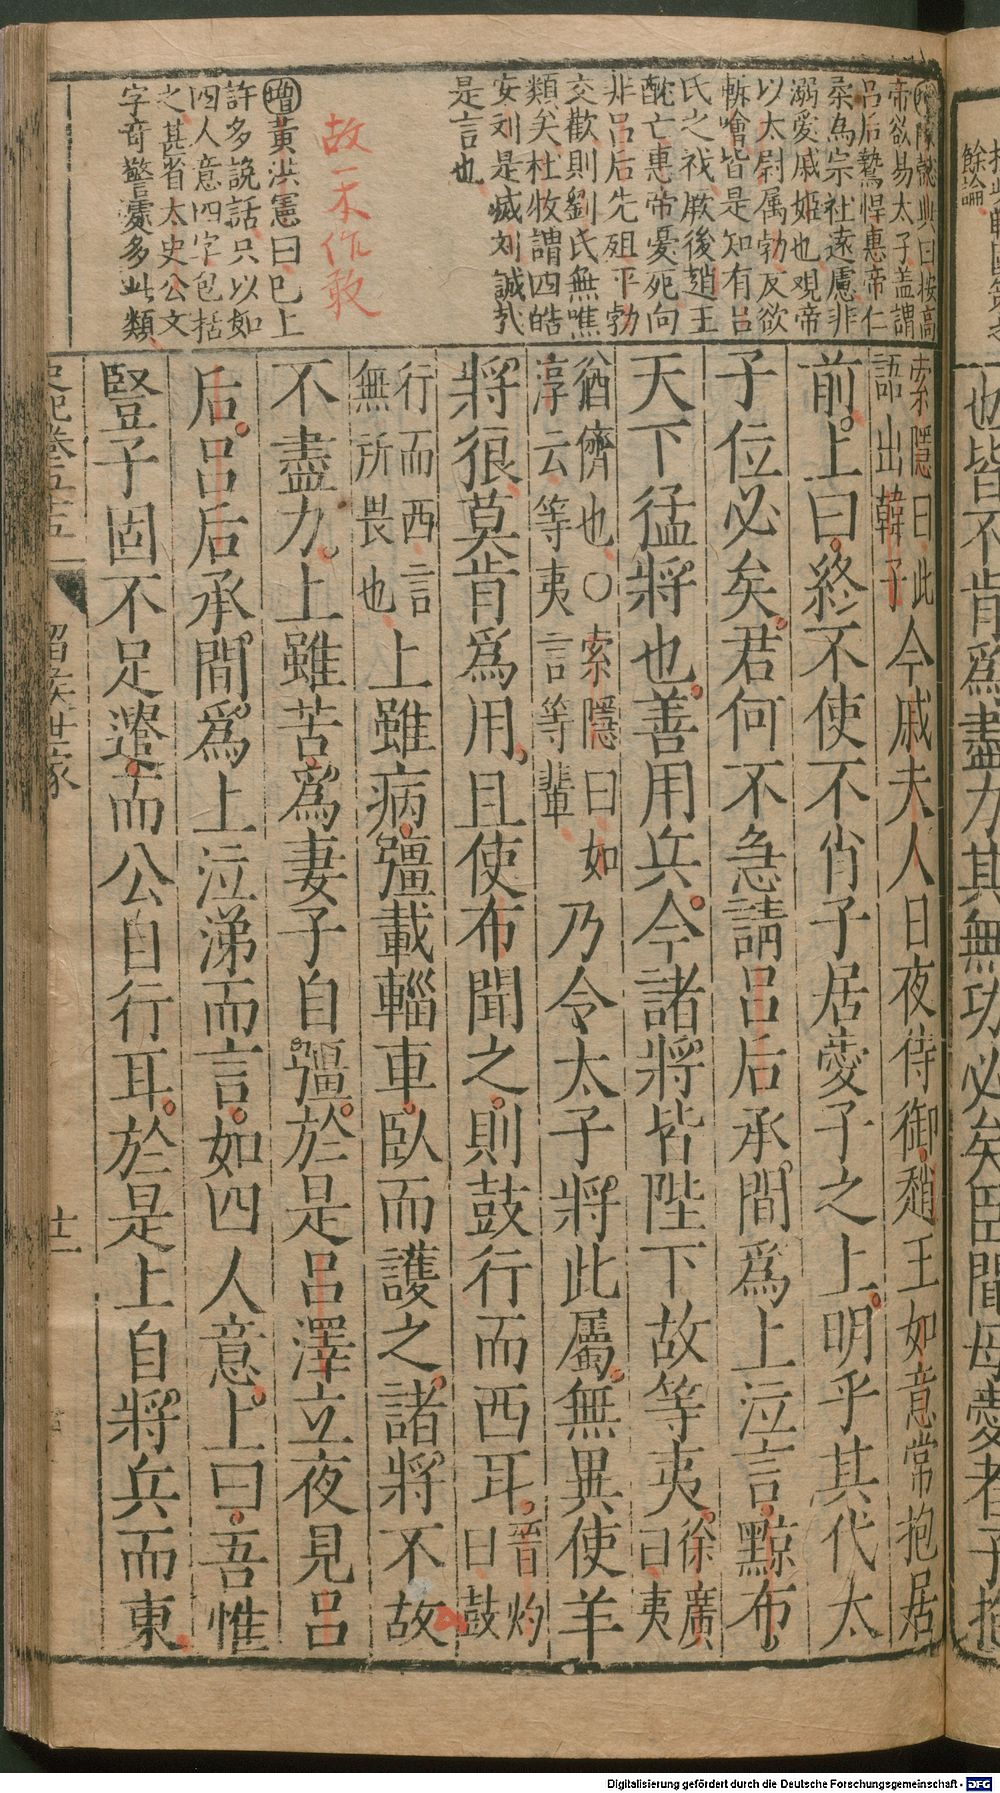 帝欲易太子盖謂
吕后鷙悍惠帝仁
柔為宗社遠慮非
溺愛戚姬也覌帝
以太尉属勃反欲
斬噲皆是知有吕
氏之祸厥後趙王
酖亡惠帝憂死向
非吕后先殂平勃
交歡則劉氏無噍
類矣杜牧謂四皓
安刘是滅刘誠㢤
是言也
故一木作敢
增黄洪憲曰已上
許多說話只以如
四人意四字包括
之甚省太史公文
字奇警處多此類
索隱曰此
語出韓子
今戚夫人日夜侍御趙王如意常抱居
前上曰終不使不肖子居愛子之上明乎其代太
子位必矣君何不急請吕后承間爲上泣言黥布
天下猛將也善用兵今諸將皆陛下故等夷
徐廣曰夷
猶儕也○索隱曰如
淳云等夷言等輩
乃令太子將此屬無異使羊
將狼莫肯爲用且使布聞之則鼓行而西耳
晉灼曰鼓
行而西言
無所畏也
上雖病彊載輜車臥而護之諸將不故
不盡力上雖苦爲妻子自彊於是吕澤立夜見吕
后吕后承間爲上泣涕而言如四人意上曰吾惟
豎子固不足遣而公自行耳於是上自將兵而東
留侯世家
十一
餘論
也皆不肯爲盡力其無功必矣臣聞母愛者子抱
Digitalisierung gefördert durch die Deutsche Forschungsgemeinschaft - DFG